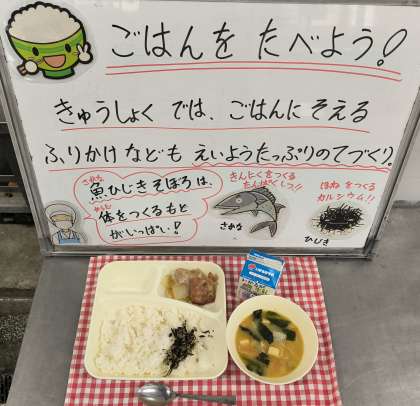 ごはんを たべよう!
きゅうしょく では、ごはんに そえる
ふりかけ なども えいようたっぷりの てづくり。
さかな
魚ひじきそぼろは、
からだ
体をつくるもと
がいっぱい!
きんにくをつくる
たんぱくしつ!!
さかな
ほねをつくる
カルシウム!!
ひじき